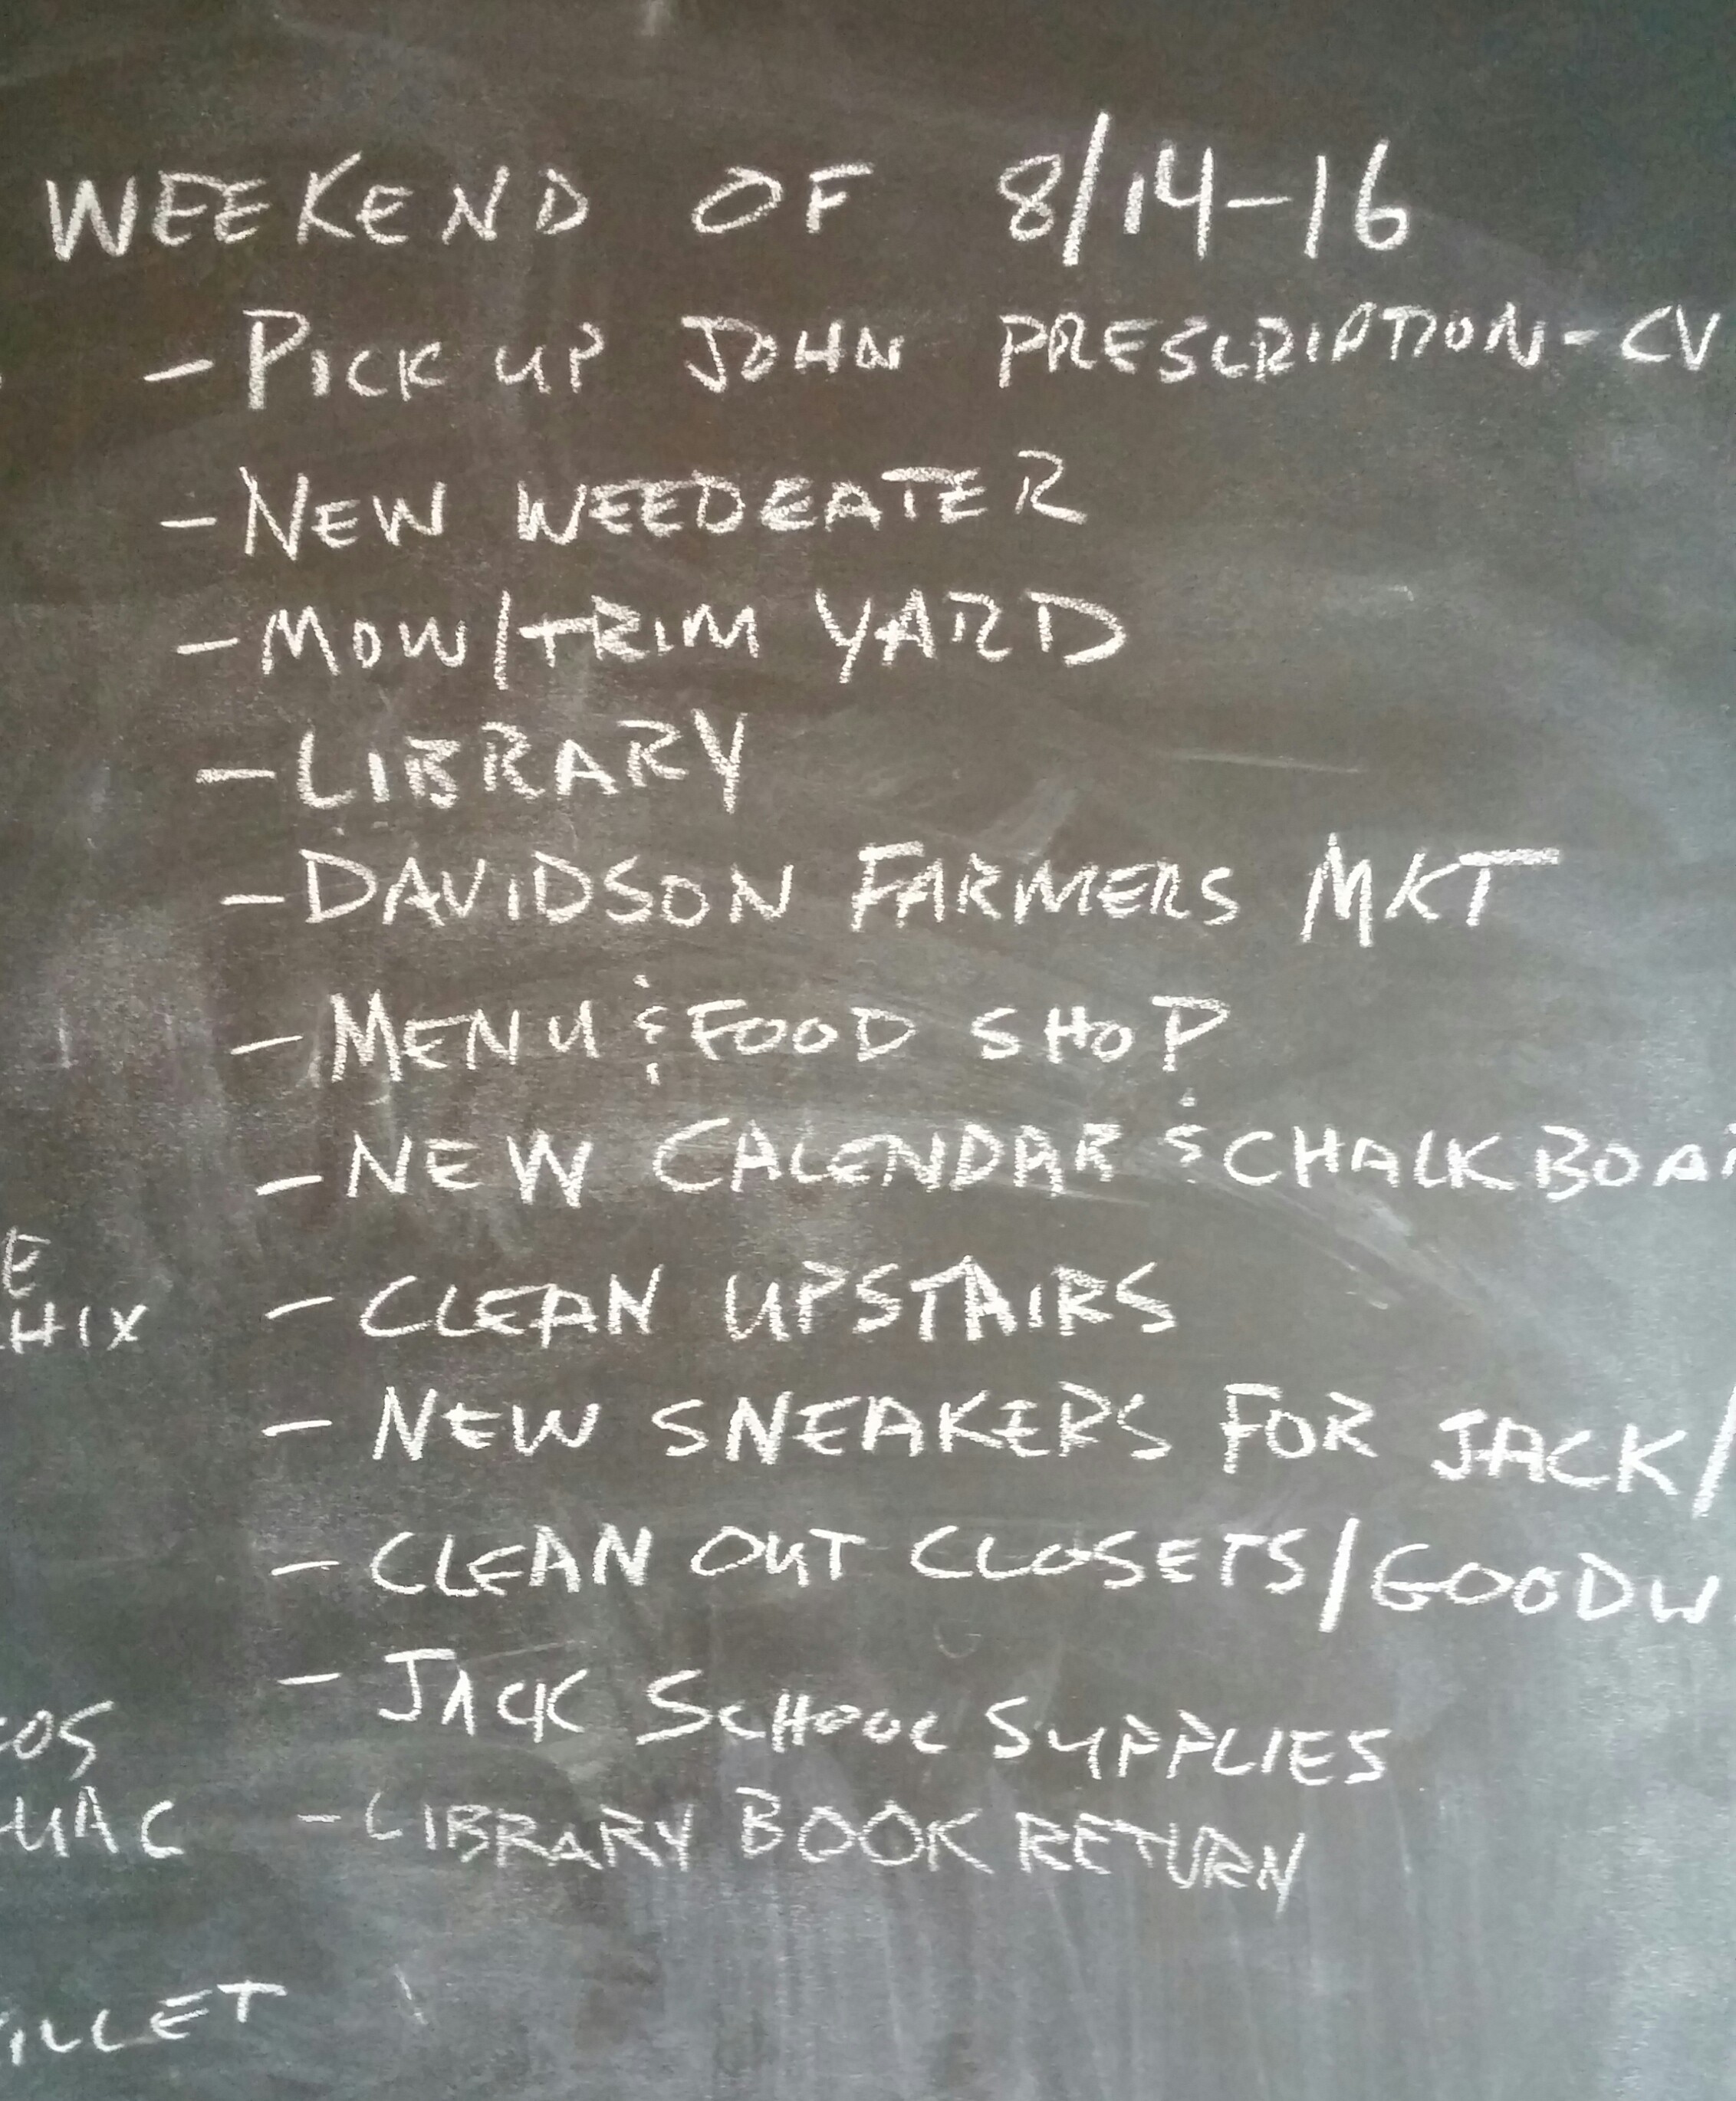 WEEKEND OF 8/14-16
- PICK UP JOHN PRESCRIPTION - CV
- NEW WEEDEATER
- MOW/TRIM YARD
- LIBRARY
- DAVIDSON FARMERS MKT
- MENU & FOOD SHOP
- NEW CALENDAR & CHALKBOAR
- CLEAN UPSTAIRS
- NEW SNEAKERS FOR JACK/
- CLEAN OUT CLOSETS/GOODW
- JACK SCHOOL SUPPLIES
- LIBRARY BOOK RETURN
E
HIX
OS
UAC
ILLET